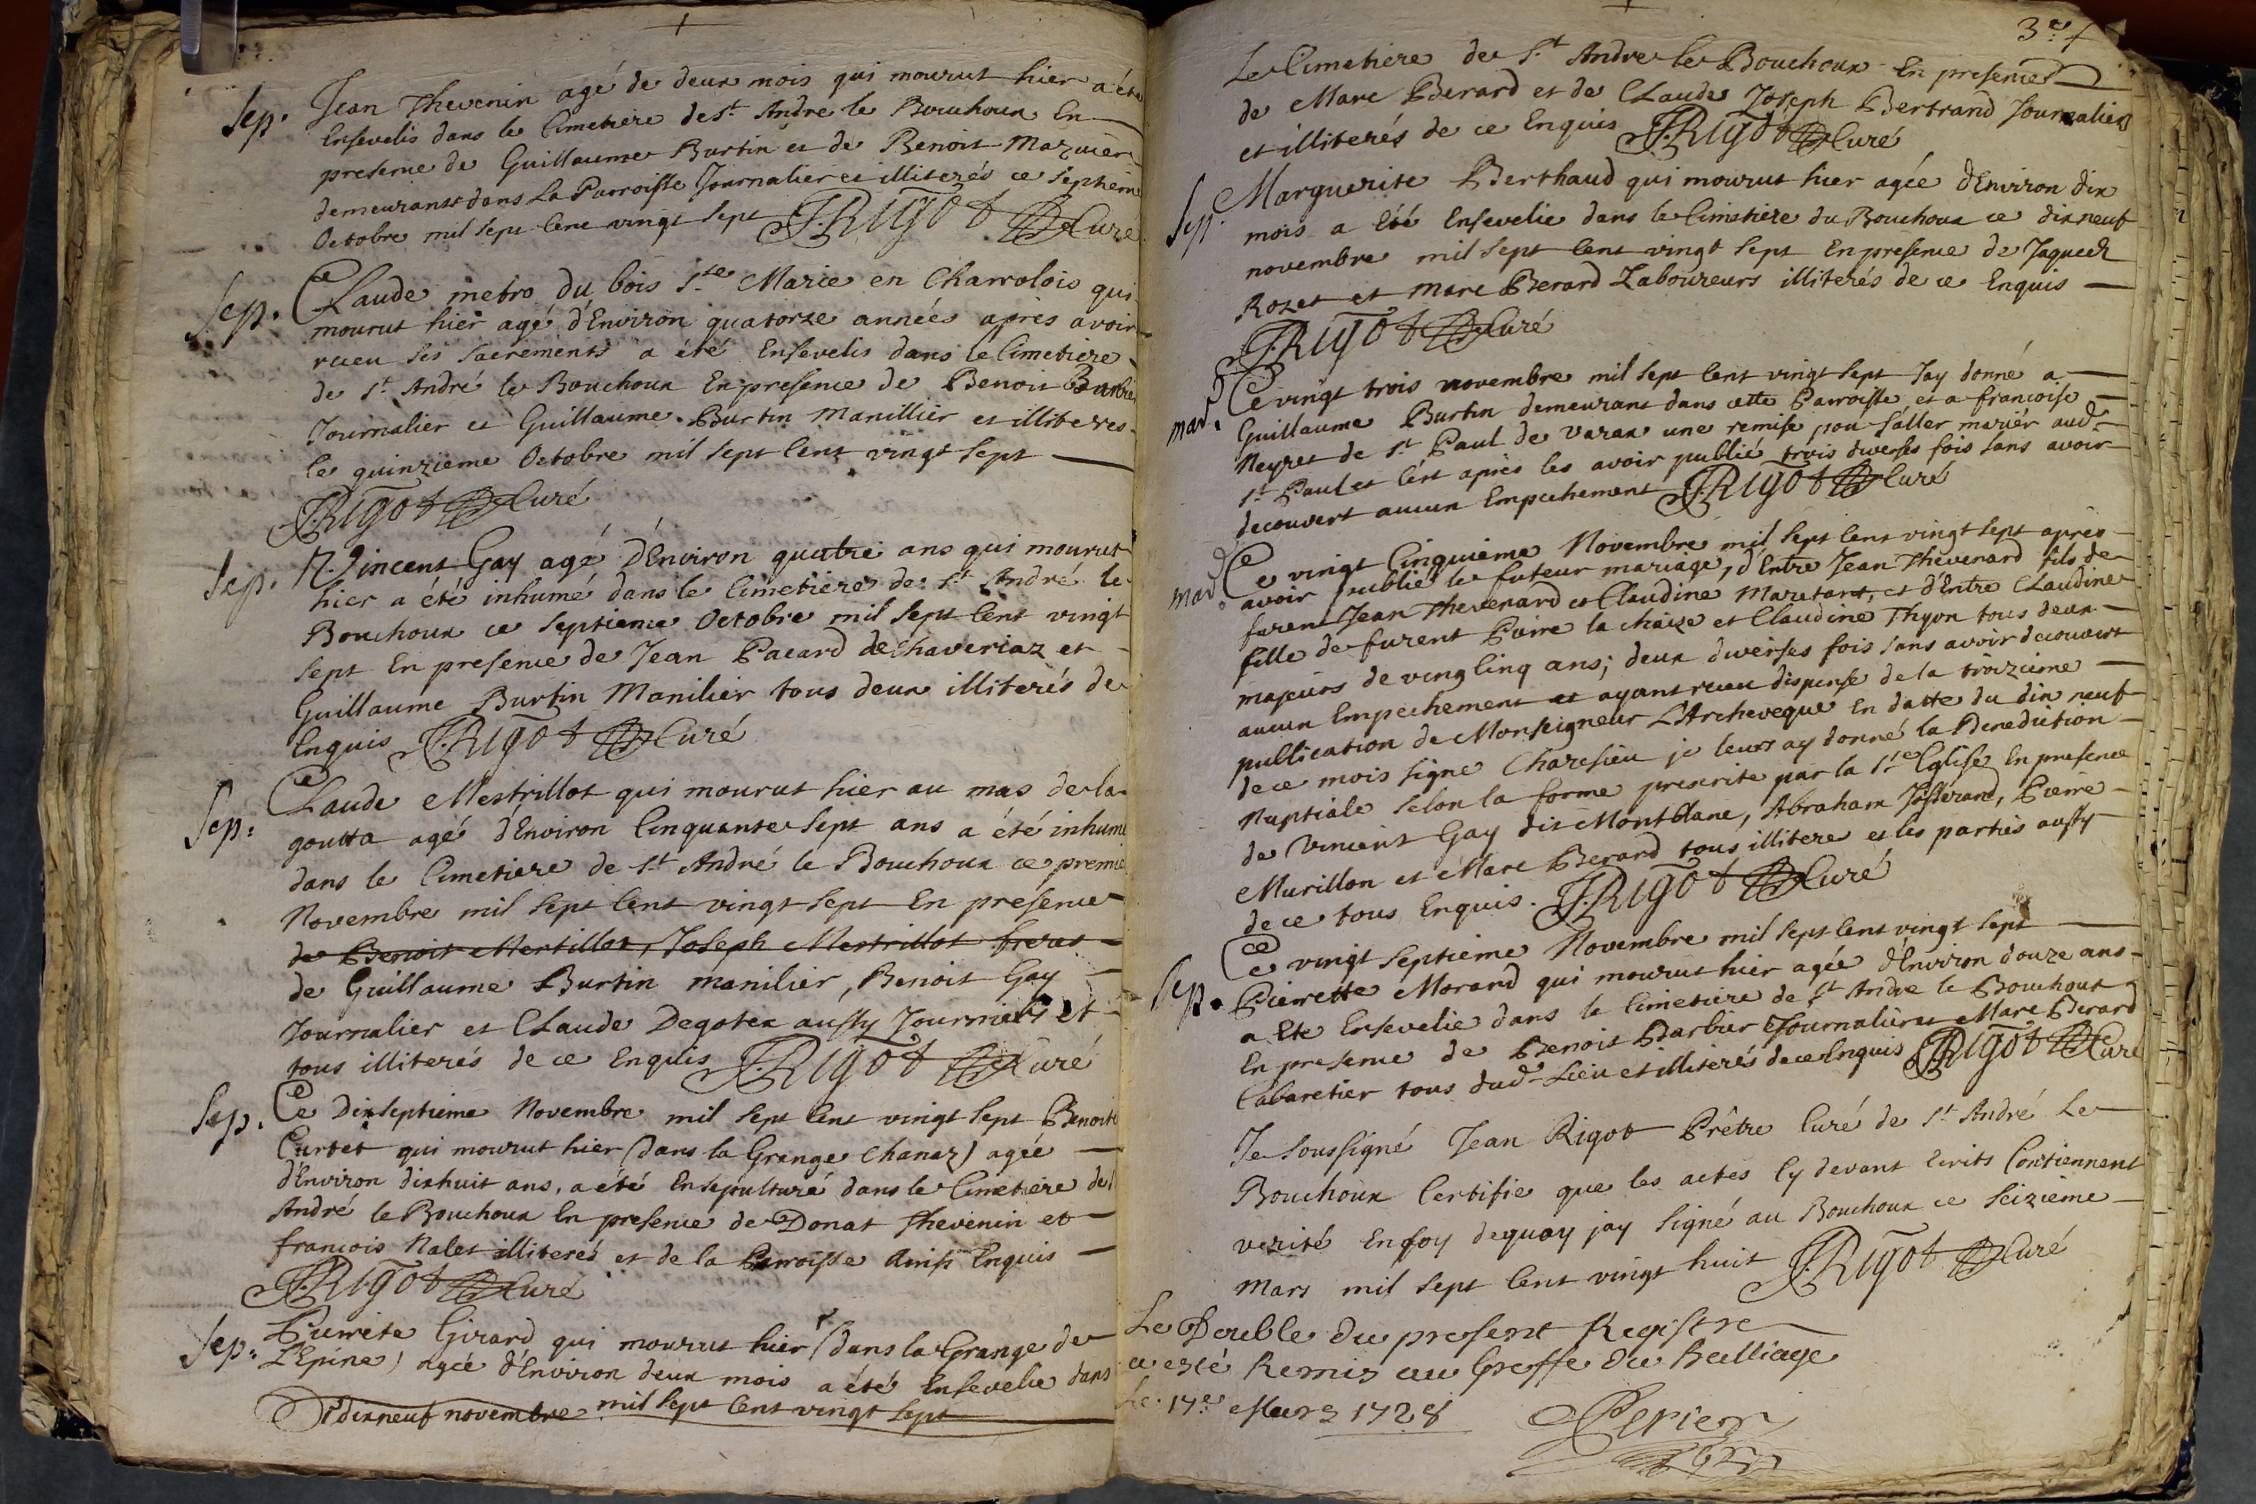 Sep. Jean Thevenin agé de deux mois qui mourut hier a été
Ensevelis dans le Cimetiere de St. André le Bouchoux En
presence de Guillaume Burtin et de Benoit Mazuier
demeurant dans La Parroisse Journalier et illiterés ce septieme
Octobre mil sept Cent vingt sept J. RIGOT Curé
Sep. Claude metro du bois Ste. Marie en Charrolois qui
mourut hier agé d'Environ quatorze années après avoir
receu ses sacrements a été Ensevelis dans le Cimetiere
de St. André le Bouchoux En presence de Benoit Barbier
Journalier et Guillaume Burtin Manillier et illiteres
le quinzieme Octobre mil sept Cent vingt sept
J. RIGOT Curé
Sep. Vincent Gay agé d'Environ quatre ans qui mourut
hier a été inhumé dans le Cimetiere de St. André le
Bouchoux ce septieme Octobre mil sept Cent vingt
sept En presence de Jean Pacard de Chaveriaz et
Guillaume Burtin Manilier tous deux illiterés de
Enquis J. RIGOT Curé
Sep: Claude Mestrillot qui mourut hier au mas de la
goutta agé d'Environ Cinquante sept ans a été inhumé
dans le Cimetiere de St. André le Bouchoux ce premie
Novembre mil sept Cent vingt sept En présence
de Benoit Mertillot, Joseph Mestrillot freres
de Guillaume Burtin manilier, Benoit Gay
Journalier et Claude Degotex aussy Journaliers et
tous illiterés de ce Enquis J. RIGOT Curé
Sep. Ce Dixseptieme Novembre mil sept Cent vingt sept Benoite
Curtet qui mourut hier (dans la Grange Chanez) agée
d'Environ dixhuit ans, a été Ensepulturé dans le Cimetiere de
André le Bouchoux En presence de Donat Thevenin et
francois Nalet illiterés et de la Parroisse Enquis
J. RIGOT Curé
Sep: Pierrete Girard qui mourut hier (dans la Grange de
L'Epine) agée d'Environ deux mois a été Ensevelie dans
dixneuf novembre mil sept Cent vingt sept
3e f
Le Cimetiere de St. André le Bouchoux En presence
de Marc Berard et de Claude Joseph Bertrand Journaliers
et illiterés de ce Enquis J. RIGOT Curé
Sep. Marguerite Berthaud qui mourut hier agée d'Environ dix
mois a été Ensevelie dans le Cimetiere du Bouchoux ce dixneuf
novembre mil sept Cent vingt sept En presence de Jaques
Rozet et Marc Berard Laboureurs illiterés de ce Enquis
J. RIGOT Curé
mard. Ce vingt trois novembre mil sept Cent vingt sept Jay donné a
Guillaume Burtin demeurant dans cette Parroisse et a francoise
Neyret de St. Paul de Varax une remise pou saller mariér aud.
St. Paul et C'est après les avoir publié trois diverses fois sans avoir
decouvert aucun Empechement J. RIGOT Curé
mard. Ce vingt Cinquieme Novembre mil sept Cent vingt sept après
avoir publiés le futeur mariage, d'Entre Jean Thevenard fils de
furent Jean Thevenard et Claudine Maretant, et d'Entre Claudine
fille de furent Pierre la chaize et Claudine Thyon tous deux
majeurs de ving Cinq ans; deux diverses fois sans avoir decouvert
aucun Empechement et ayant receu dispense de la troizieme
publication de Monseigneur L'Archeveque En datte du dix neuf
de ce mois signe Charesieu je leurs ay donné la Benediction
Nuptiale selon la forme prescrite par la Ste. Eglise En presence
de Vincent Gay dit Montblanc, Abraham Josserand, Pierre
Murillon et Marc Berard tous illitere et les parties aussy
de ce tous Enquis. J. RIGOT Curé
Sep. Ce vingt septieme Novembre mil sept Cent vingt sept
Pierrette Morand qui mourut hier agée d'Environ douze ans
a Ete Ensevelie dans le Cimetiere de St. Andre le Bouchoux
En presence de Benoit Barbier Journalier et Marc Berard
Cabaretier tous dud. Lieu et illiterés de ce Enquis J. RIGOT Curé
Je soussigné Jean Rigot Prêtre Curé de St. André Le
Bouchoux Certifie que les actes Cy devant Ecrits Contiennent
verité En foy dequoy jay signé au Bouchoux ce seizieme
Mars mil sept Cent vingt huit J. RIGOT Curé
Le Double du present Registre
a esté Remis au Greffe du Balliage
Le 17e Mars 1728 Perier